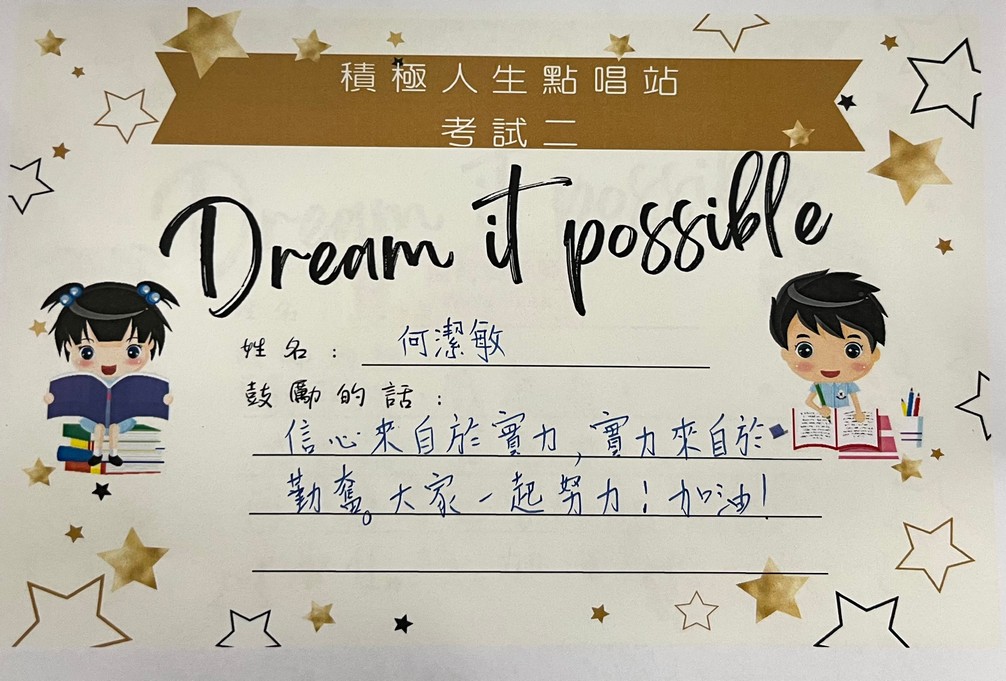 積極人生點唱站
考試二
Dream it possible
姓名：何潔敏
鼓勵的話：
信心來自於實力,實力來自於
勤奮。大家一起努力！加油！